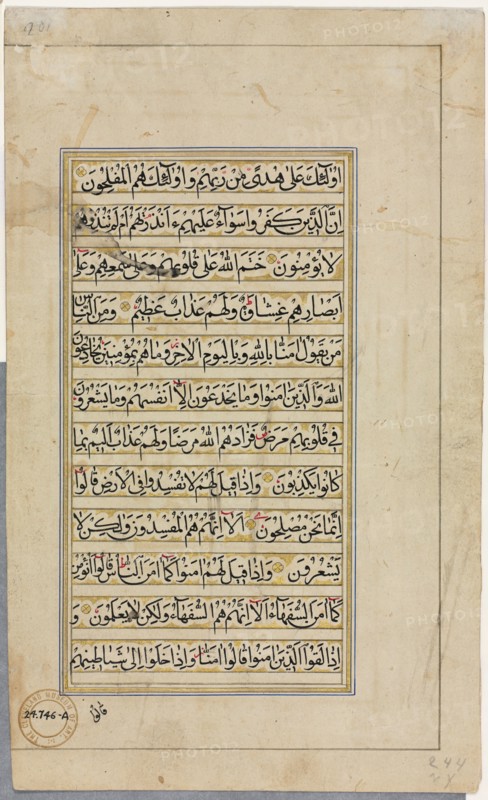 اُولٰٓئِكَ عَلٰى هُدًى مِنْ رَبِّهِمْ وَاُولٰٓئِكَ هُمُ الْمُفْلِحُونَ
اِنَّ الَّذِينَ كَفَرُوا سَوَآءٌ عَلَيْهِمْ ءَاَنْذَرْتَهُمْ اَمْ لَمْ تُنْذِرْهُمْ
لَا يُؤْمِنُونَ خَتَمَ اللّٰهُ عَلٰى قُلُوبِهِمْ وَعَلٰى سَمْعِهِمْ وَعَلٰٓى
اَبْصَارِهِمْ غِشَاوَةٌ وَلَهُمْ عَذَابٌ عَظِيمٌ وَمِنَ النَّاسِ
مَنْ يَقُولُ اٰمَنَّا بِاللّٰهِ وَبِالْيَوْمِ الْاٰخِرِ وَمَا هُمْ بِمُؤْمِنِينَ يُخَادِعُونَ
اللّٰهَ وَالَّذِينَ اٰمَنُوا وَمَا يَخْدَعُونَ اِلَّآ اَنْفُسَهُمْ وَمَا يَشْعُرُونَ
فِي قُلُوبِهِمْ مَرَضٌ فَزَادَهُمُ اللّٰهُ مَرَضًا وَلَهُمْ عَذَابٌ اَلِيمٌ بِمَا
كَانُوا يَكْذِبُونَ وَاِذَا قِيلَ لَهُمْ لَا تُفْسِدُوا فِي الْاَرْضِ قَالُوٓا
اِنَّمَا نَحْنُ مُصْلِحُونَ اَلَآ اِنَّهُمْ هُمُ الْمُفْسِدُونَ وَلٰكِنْ لَا
يَشْعُرُونَ وَاِذَا قِيلَ لَهُمْ اٰمِنُوا كَمَآ اٰمَنَ النَّاسُ قَالُوٓا اَنُؤْمِنُ
كَمَآ اٰمَنَ السُّفَهَآءُ اَلَآ اِنَّهُمْ هُمُ السُّفَهَآءُ وَلٰكِنْ لَا يَعْلَمُونَ وَ
اِذَا لَقُوا الَّذِينَ اٰمَنُوا قَالُوٓا اٰمَنَّا وَاِذَا خَلَوْا اِلٰى شَيَاطِينِهِمْ
قَالُوٓا
THE CLEVELAND MUSEUM OF ART
24.746-A
244
PHOTO12